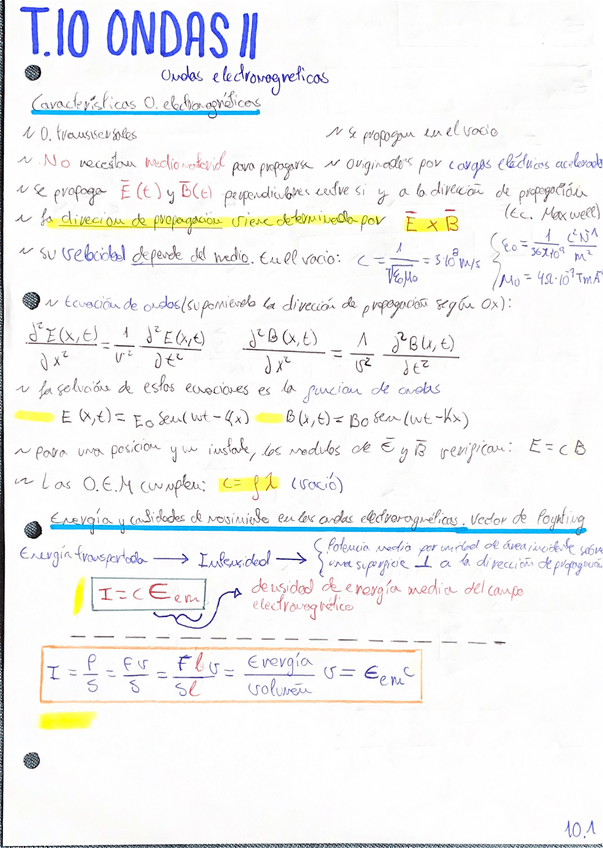 T.10 ONDAS II
Ondas electromagneticas
Características O. electromagnéticas
~ O. transversales ~ se propagan en el vacio
~ No necesitan medio material para propagarse ~ Originados por cargas eléctricas aceleradas
~ se propaga Ē(t) y B̄(t) perpendiculares entre si y a la direción de propagación
(Ec. Maxwell)
~ la direcion de propagación viene determinada por Ē x B̄
~ su velocidad depende del medio. En el vacio: c = 1/√ε₀μ₀ = 3·10⁸ m/s { ε₀ = 1/36π·10⁹ C²N⁻¹/m²
μ₀ = 4π·10⁻⁷ TmA⁻¹
~ Ecuación de ondas (suponiendo la direción de propagación según Ox):
∂²E(x,t)/∂x² = 1/v² ∂²E(x,t)/∂t² ∂²B(x,t)/∂x² = 1/v² ∂²B(x,t)/∂t²
~ la solución de estas ecuaciones es la funcion de ondas
E(x,t) = E₀ sen(wt - kx) B(x,t) = B₀ sen(wt - kx)
~ para una posicion y un instante, los modulos de Ē y B̄ verifican: E = c B
~ Las O.E.M cumplen: c = f λ (vació)
Energía y cantidades de movimiento en las ondas electromagnéticas. Vector de Poynting
Energía transportada → Intensidad → { Potencia media por unidad de área incidente sobre
una superficie ⊥ a la dirección de propagación
I = c ϵem → densidad de energía media del campo
electromagnético
I = P/S = Fv/S = Flv/Sl = Energía/volumen v = ϵem c
10.1